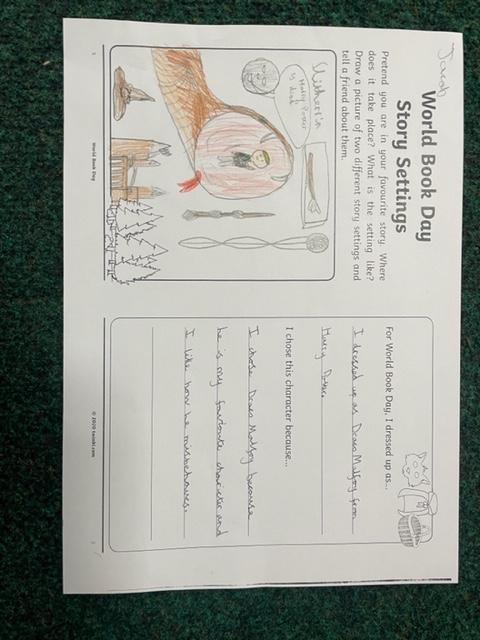 Jacob
World Book Day
Story Settings
Pretend you are in your favourite story. Where
does it take place? What is the setting like?
Draw a picture of two different story settings and
tell a friend about them.
Slitherin
Harry Potter
is
World Book Day
For World Book Day, I dressed up as...
I dressed up as Draco Malfoy from
Harry Potter
I chose this character because...
I chose Draco Malfoy because
he is my favourite charicter and
I like how he misbehaves.
© 2020 twinkl.com